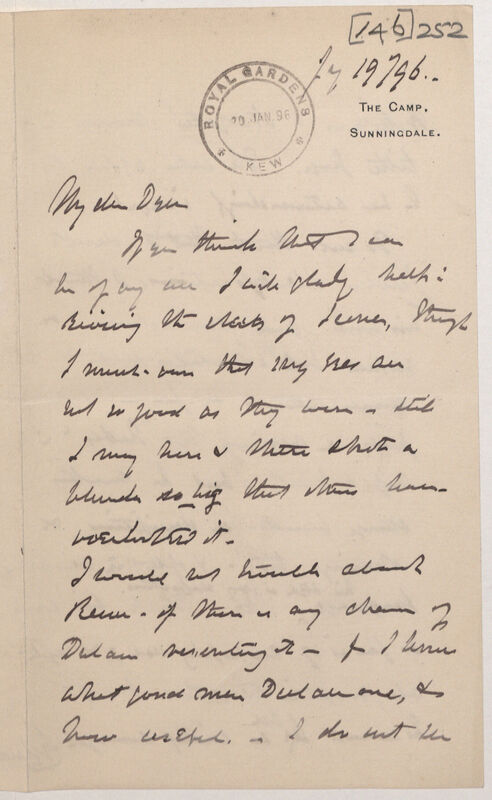 [146] 252
Jy 19/96.
ROYAL GARDENS
20. JAN. 96
KEW
THE CAMP,
SUNNINGDALE.
My dear Dyer
If you think that I can
be of any use I will gladly help:
the sheets of though
I must own that my eyes are
not so good as they were – still
I may here & there spot a
blunder so big that others have
overlooked it –
I would not trouble about
if there is any chance of
resenting it – for I know
what good men are, &
how useful. – I do not see